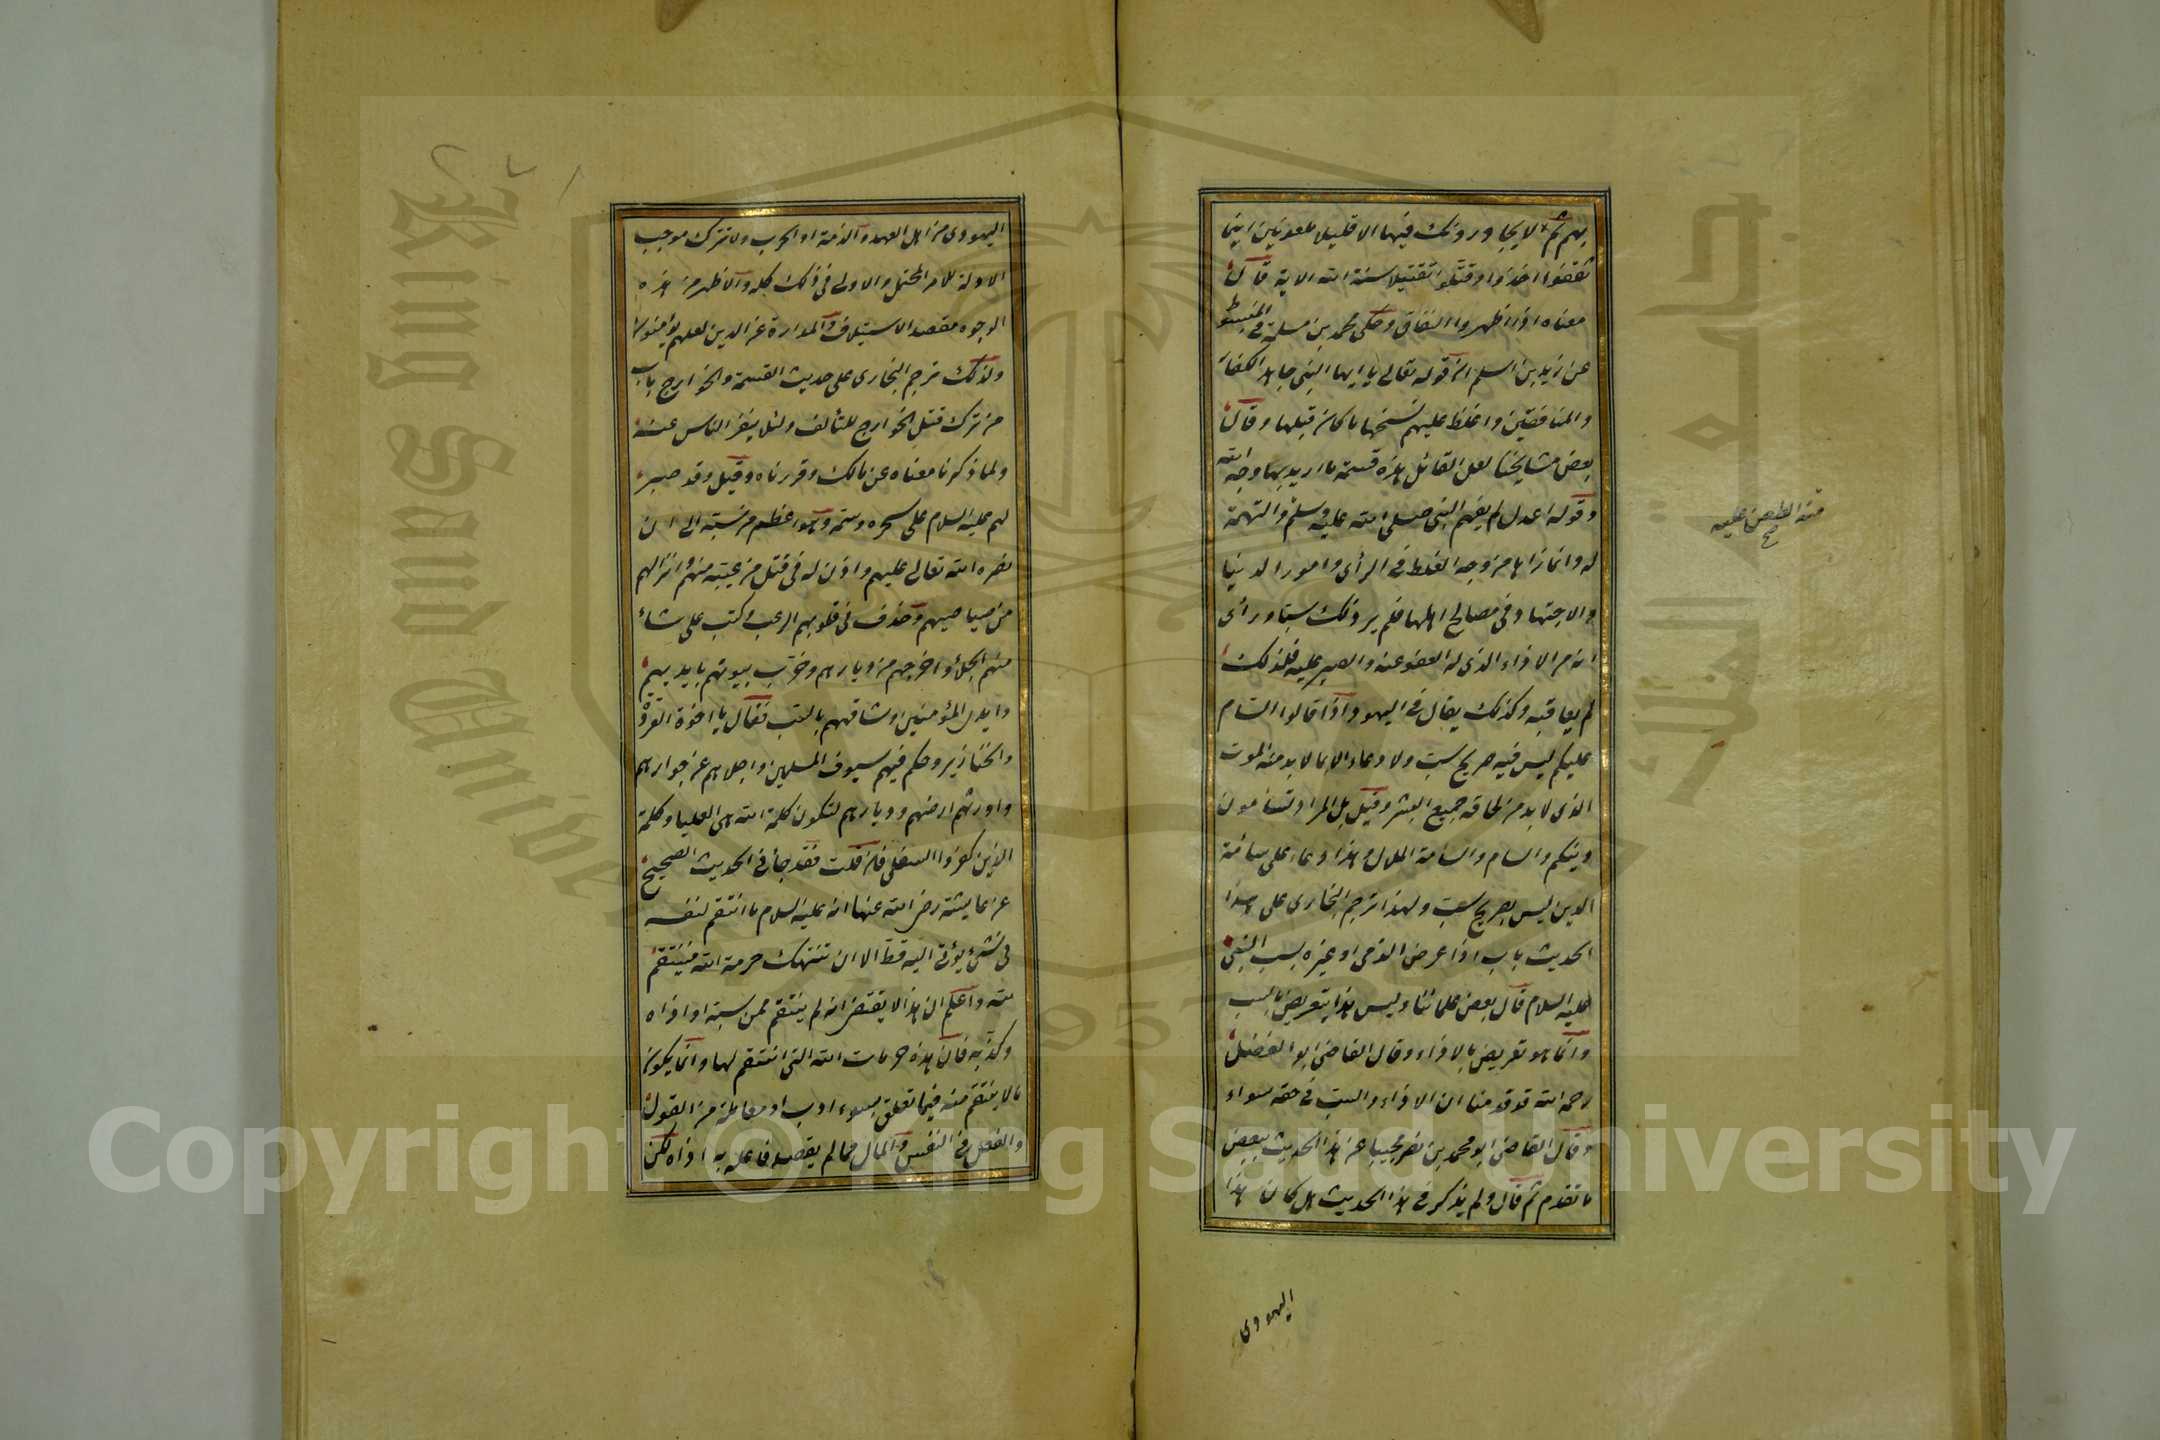 بهم ثم لا يجاورونك فيها الا قليلا ملعونين اينما
ثقفوا اخذوا وقتلوا تقتيلا سنة الله الاية قال
معناه اذا اظهروا النفاق وحكى محمد بن مسلمة في المبسوط
عن زيد بن اسلم ان قوله تعالى يا ايها النبي جاهد الكفار
والمنافقين واغلظ عليهم نسخها ما كان قبلها وقال
بعض مشايخنا لعل القائل هذه قسمة ما اريد بها وجه الله
وقوله اعدل لم يفهم النبي صلى الله عليه وسلم والتهمة
له وانما رآها من وجه الغلط في الرأى وامور الدنيا
والاجتهاد في مصالح اهلها فلم ير ذلك سبا ورأى
انه من الاذاء الذى له العفو عنه والصبر عليه فلذلك
لم يعاقبه وكذلك يقال في اليهود اذا قالوا السام
عليكم ليس فيه صريح سب ولا دعاء الا بما لا بد منه الموت
الذى لا بد من لحاقه جميع البشر وقيل بل المراد تسامون
دينكم والسام والسامة الملال وهذا دعاء على سآمة
الدين ليس بصريح سب ولهذا ترجم البخارى على هذا
الحديث باب اذا عرض الذمى او غيره بسب النبي
عليه السلام قال بعض علمائنا وليس هذا بتعريض بالسب
وانما هو تعريض بالاذاء وقال القاضى ابو الفضل
رحمه الله قد قدمنا ان الاذاء والسب في حقه سواء
وقال القاضى ابو محمد بن نصر مجيبا عن هذا الحديث ببعض
ما تقدم ثم قال ولم يذكر في هذا الحديث هل كان هذا
منه الطعن عليه
صح
اليهودى
اليهودى من اهل العهد والذمة او الحرب ولا نترك موجب
الادلة للامر المحتمل والاولى في ذلك كله والاظهر من هذه
الوجوه مقصد الاستيلاف والمداراة عن الدين لعلهم يؤمنون
ولذلك ترجم البخارى على حديث القسمة والخوارج باب
من ترك قتل الخوارج للتألف ولئلا ينفر الناس عنه
ولما ذكرنا معناه عن مالك وقررناه وقيل وقد صبر
لهم عليه السلام على سحره وسمه وهو اعظم من سبه الى ان
نصره الله تعالى عليهم واذن له في قتل من عينه منهم وانزالهم
من صياصيهم وقذف في قلوبهم الرعب وكتب على من شاء
منهم الجلاء واخرجهم من ديارهم وخرب بيوتهم بايديهم
وايدى المؤمنين وشاقهم بالسب فقال يا اخوة القردة
والخنازير وحكم فيهم سيوف المسلمين واجلاهم عن جوارهم
واورثهم ارضهم وديارهم لتكون كلمة الله هى العليا وكلمة
الذين كفروا السفلى فان قلت فقد جاء في الحديث الصحيح
عن عايشة رضى الله عنها انه عليه السلام ما انتقم لنفسه
في شئ يؤتى اليه قط الا ان تنتهك حرمة الله فينتقم
لله واعلم ان هذا لا يقتضى انه لم ينتقم ممن سبه او اذاه
وكذبه فان هذه حرمات الله التى انتقم لها وانما يكون
ما لا ينتقم منه فيما تعلق بسوء ادب او معاملة من القول
والفعل في النفس والمال مما لم يقصد فاعله به اذاه لكن
Copyright © King Saud University
King Saud University
1957